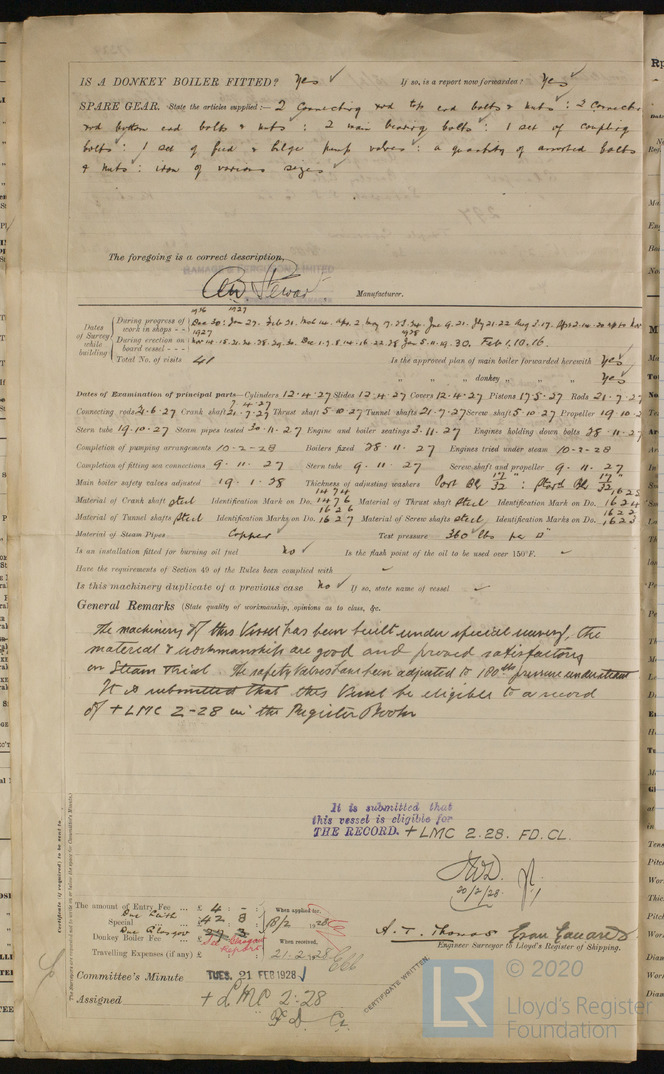 IS A DONKEY BOILER FITTED? Yes ✓ If so, is a report now forwarded? Yes ✓
SPARE GEAR. State the articles supplied:— 2 Connecting rod top end bolts & nuts : 2 Connectg
rod bottom end bolts & nuts : 2 main bearing bolts : 1 set of coupling
bolts : 1 set of feed & bilge pump valves : a quantity of assorted bolts
& nuts : iron of various sizes
The foregoing is a correct description,
Manufacturer.
1926 1927
Dates of Survey while building
During progress of work in shops - -
1927 1928
During erection on board vessel - - -
Total No. of visits 41
Is the approved plan of main boiler forwarded herewith Yes ✓
" " " donkey " " " Yes ✓
Dates of Examination of principal parts—Cylinders 12.4.27 Slides 12.4.27 Covers 12.4.27 Pistons 17.5.27 Rods 21.7.27
Connecting rods 21.6.27 Crank shaft 21.7.27 Thrust shaft 5.10.27 Tunnel shafts 21.7.27 Screw shaft 5.10.27 Propeller 19.10.2
Stern tube 19.10.27 Steam pipes tested 30.11.27 Engine and boiler seatings 3.11.27 Engines holding down bolts 28.11.27
Completion of pumping arrangements 10-2-28 Boilers fixed 28.11.27 Engines tried under steam 10-2-28
Completion of fitting sea connections 9.11.27 Stern tube 9.11.27 Screw shaft and propeller 9.11.27
Main boiler safety valves adjusted 19.1.28 Thickness of adjusting washers Port Blr 17/32" : Starbd Blr 17/32"
Material of Crank shaft Steel Identification Mark on Do. 1474 1476 Material of Thrust shaft Steel Identification Mark on Do. 1625 1624
Material of Tunnel shafts Steel Identification Marks on Do. 1626 1627 Material of Screw shafts Steel Identification Marks on Do. 1622 1623
Material of Steam Pipes Copper ✓ Test pressure 360 lbs per □"
Is an installation fitted for burning oil fuel No ✓ Is the flash point of the oil to be used over 150°F. ✓
Have the requirements of Section 49 of the Rules been complied with ✓
Is this machinery duplicate of a previous case No ✓ If so, state name of vessel ✓
General Remarks (State quality of workmanship, opinions as to class, &c.
The machinery of this Vessel has been built under special survey, the
material & workmanship are good and proved satisfactory
on Steam Trial. The safety valves have been adjusted to 180 lbs pressure under steam
It is submitted that this Vessel be eligible to a record
of + LMC 2-28 in the Register Book
It is submitted that
this vessel is eligible for
THE RECORD. + LMC 2.28. FD. CL.
20/2/28
Certificate (if required) to be sent to
The amount of Entry Fee ... £ 4 : - :
Due Leith
Special ... £ 42 : 8 :
Due Glasgow
Donkey Boiler Fee ... £
See Glasgow Report
Travelling Expenses (if any) £
When applied for, 18/2 1928
When received, 21.2.1928
A. T. Thomas
Engineer Surveyor to Lloyd's Register of Shipping.
Committee's Minute TUES. 21 FEB 1928
Assigned + LMC 2.28
F.D. CL.
CERTIFICATE WRITTEN.
© 2020
LR
Lloyd's Register
Foundation